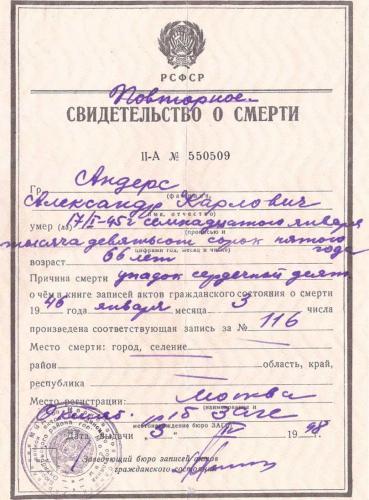 РСФСР
Повторное
СВИДЕТЕЛЬСТВО О СМЕРТИ
II-А № 550509
Гр. Андерс
(фамилия,
Александр Карлович
имя, отчество)
умер (ла) 17/I-45г семнадцатого января
(прописью и
тысяча девятьсот сорок пятого
цифрами год, месяц и число) года
возраст 66 лет
Причина смерти упадок сердечной деят
о чём в книге записей актов гражданского состояния о смерти
19 года января месяца 3 числа
произведена соответствующая запись за № 116
Место смерти: город, селение
район область, край,
республика
Место регистрации: Москва
(наименование и
загс
местонахождение бюро ЗАГС)
Дата выдачи „3" 1948
Заведующий бюро записей актов
гражданского состояния